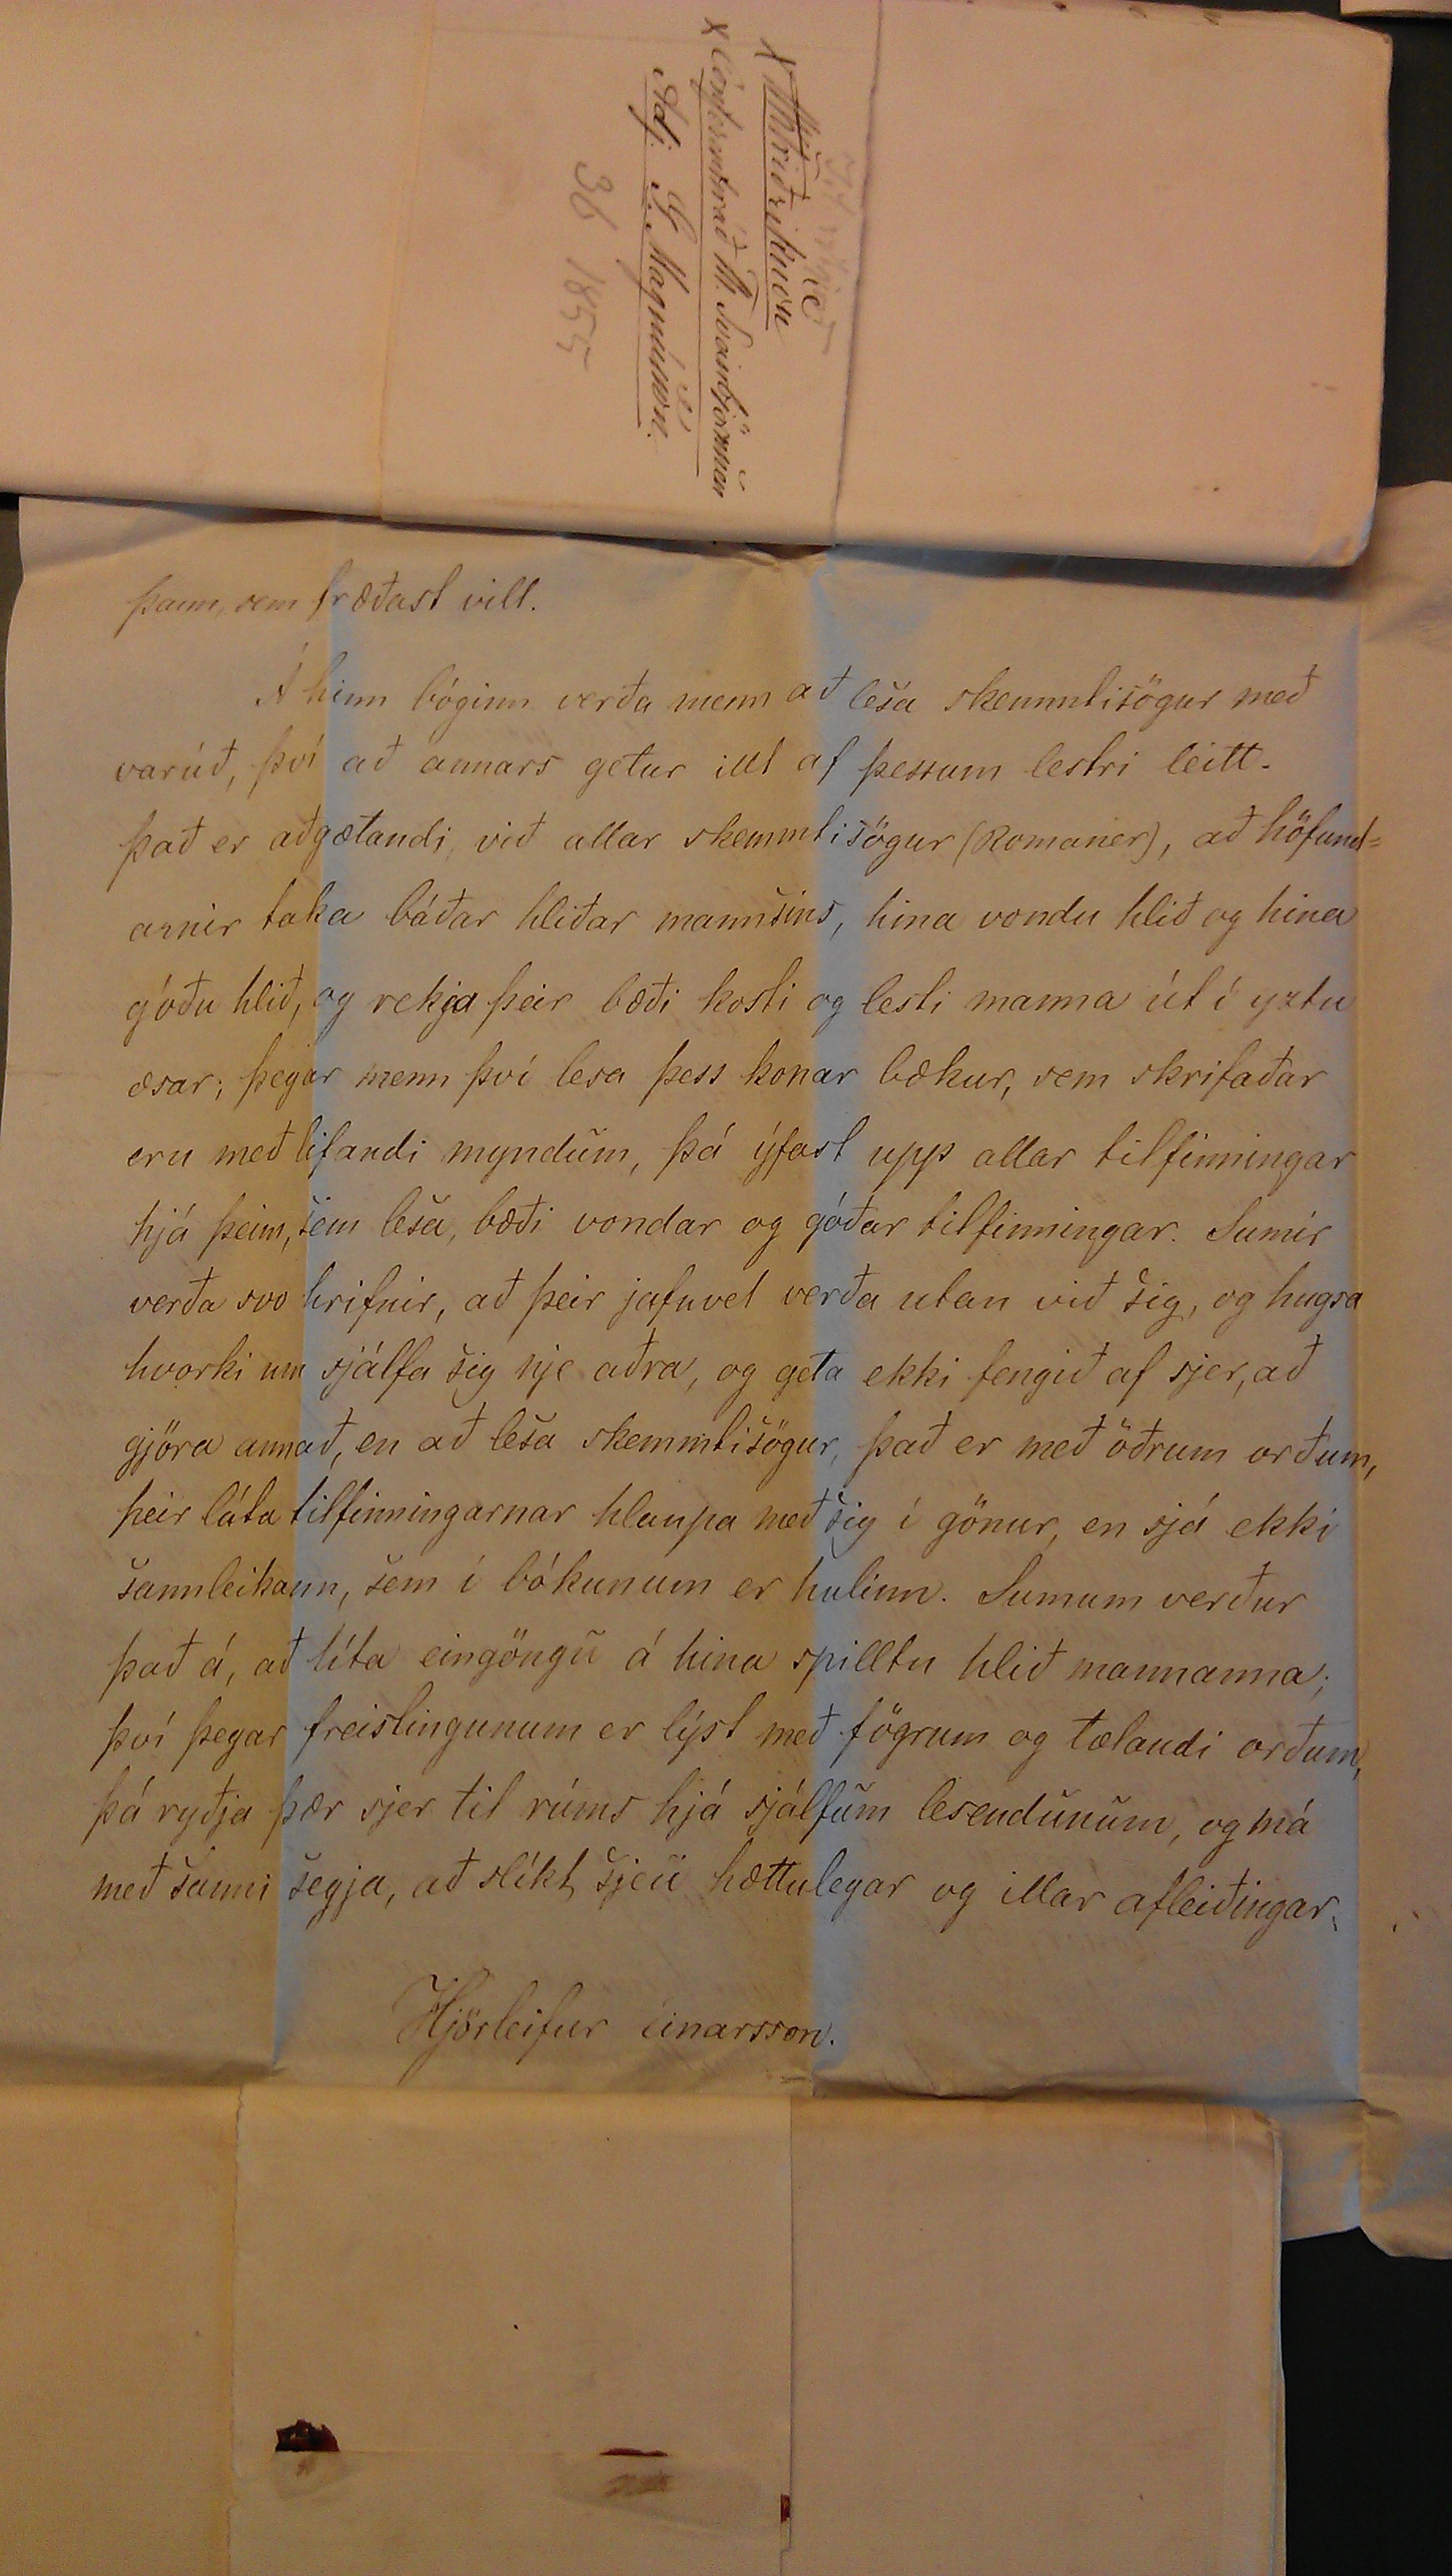 x H. Friðriksson
x Conferentsráð Þ. Sveinbjörnsson
Adj. G. Magnússon.
36 1855
þann, sem fræðast vill.
Á hinn bóginn verða menn að lesa skemmtisögur með
varúð, því að annars getur illt af þessum lestri leitt.
það er aðgætandi við allar skemmtisögur (Romaner), að höfund=
arnir taka báðar hliðar mannsins, hina vondu hlið og hina
góðu hlið, og rekja þeir bæði kosti og lesti manna út í yztu
æsar; þegar menn því lesa þess konar bækur, sem skrifaðar
eru með lifandi myndum, þá ýfast upp allar tilfinningar
hjá þeim, sem lesa, bæði vondar og góðar tilfinningar. Sumir
verða svo hrifnir, að þeir jafnvel verða utan við sig, og hugsa
hvorki um sjálfa sig nje aðra, og geta ekki fengið af sjer, að
gjöra annað, en að lesa skemmtisögur, það er með öðrum orðum,
þeir láta tilfinningarnar hlaupa með sig í gönur, en sjá ekki
sannleikann, sem í bókunum er hulinn. Sumum verður
það á, að líta eingöngu á hina spilltu hlið mannanna;
því þegar freistingunum er lýst með fögrum og tælandi orðum,
þá ryðja þær sjer til rúms hjá sjálfum lesendunum, og má
með sanni segja, að slíkt sjeu hættulegar og illar afleiðingar.
Hjörleifur Einarsson.